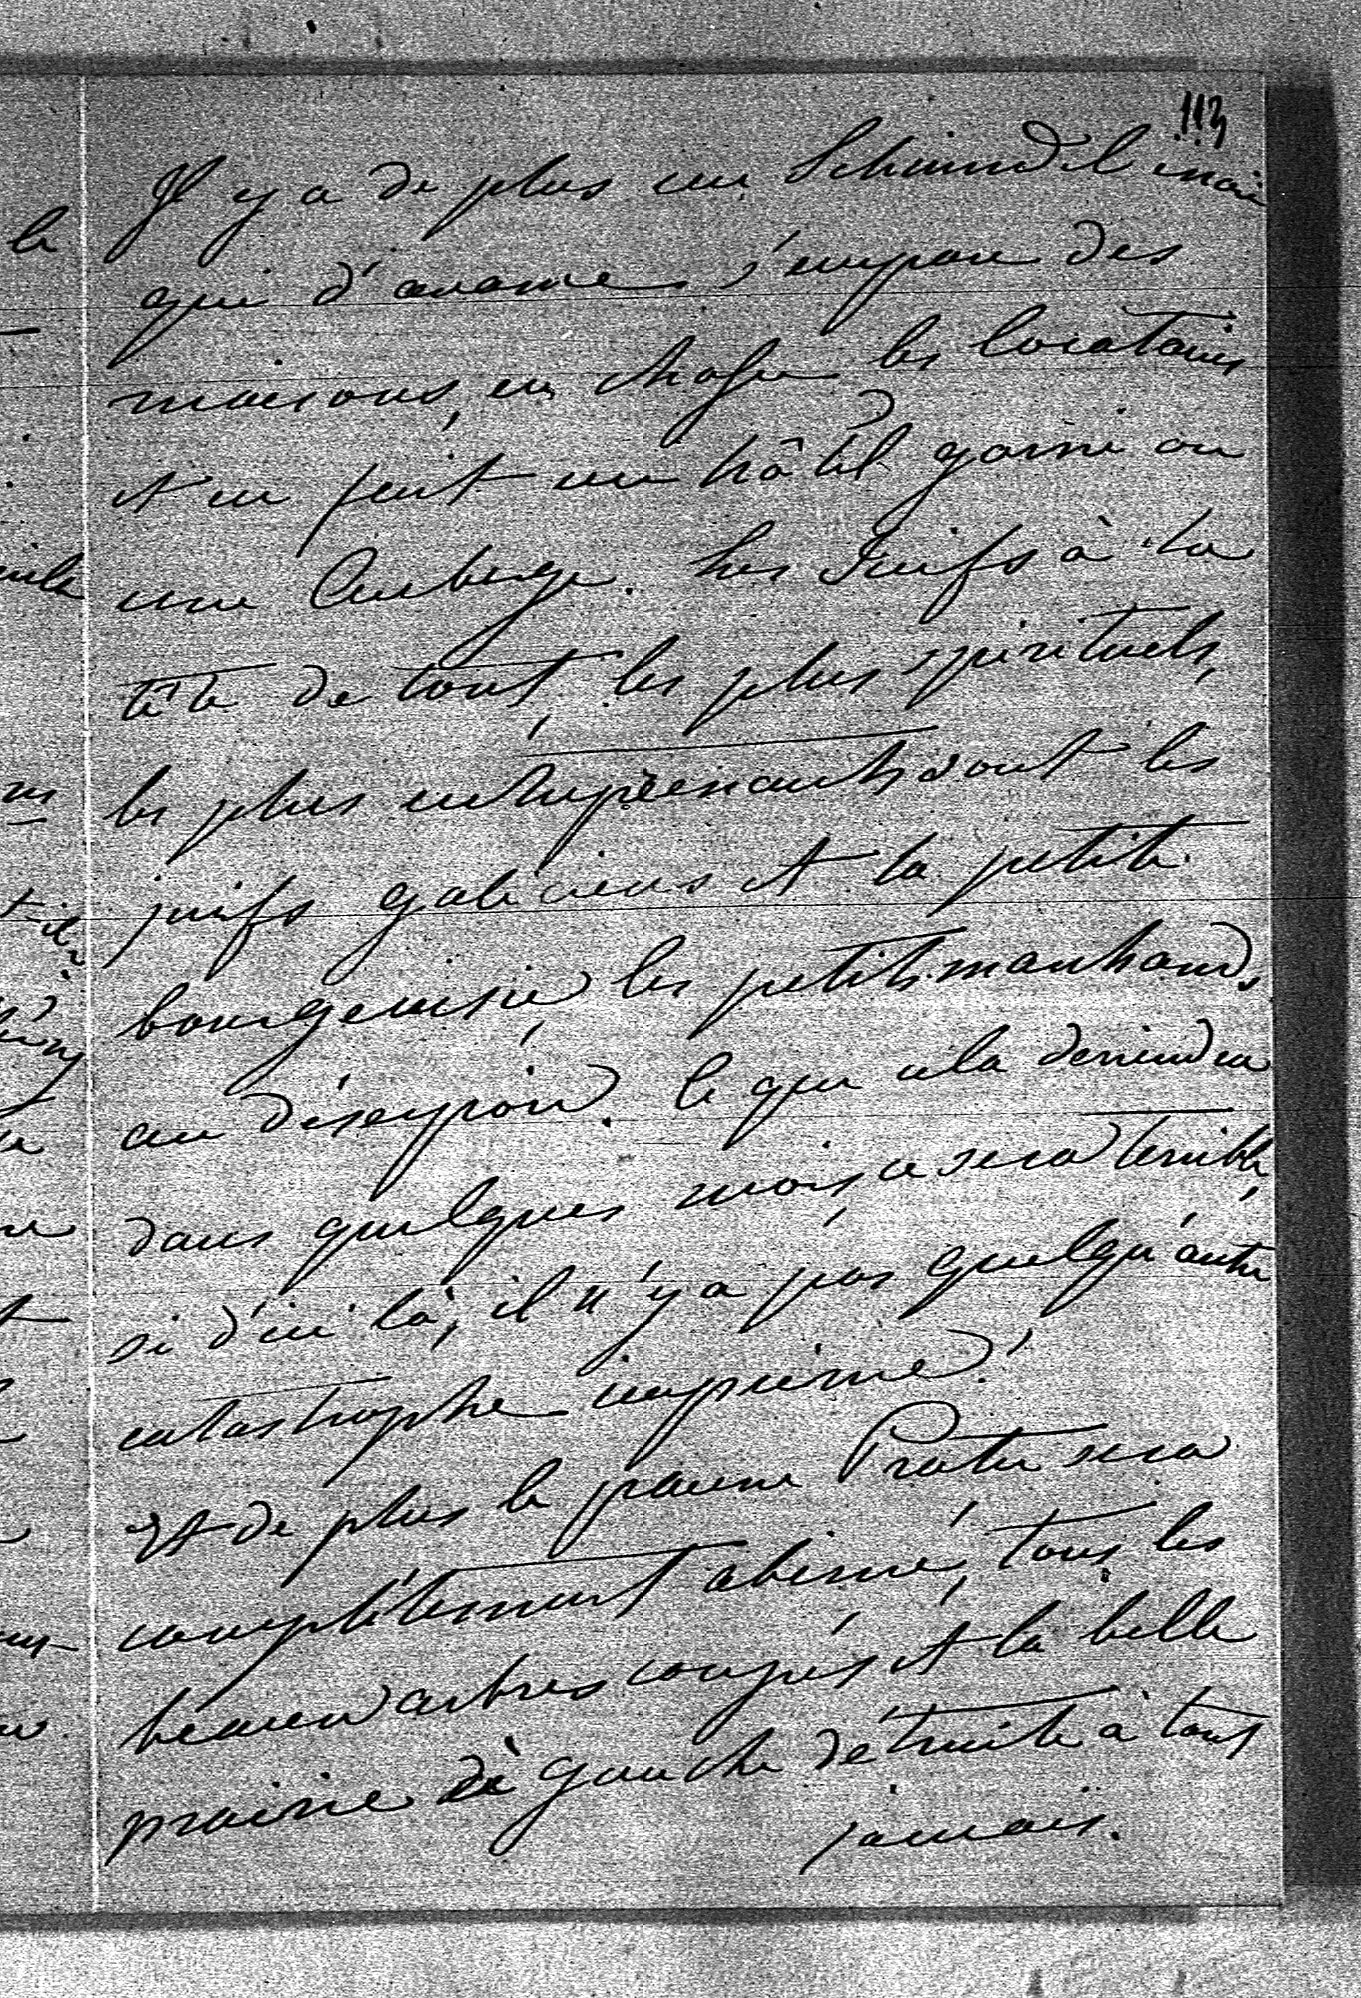 113
Il y a de plus un Schwindel inouï
qui d'avance s'empare des
maisons, en chasse les locataires
et en fait un hôtel garni ou
une Auberge. Les Juifs à la
tête de tout, les plus spirituels,
les plus entreprenants sont les
juifs galiciens et la petite
bourgeoisie, les petits marchands
au désespoir. Ce que cela deviendra
dans quelques mois, ce sera terrible,
si d'ici là, il n'y a pas quelqu'autre
catastrophe imprimé!
Et de plus le pauvre Prater sera
complètement abimé, tous les
beaux arbres coupés et la belle
prairie à gauche détruite à tout
jamais.